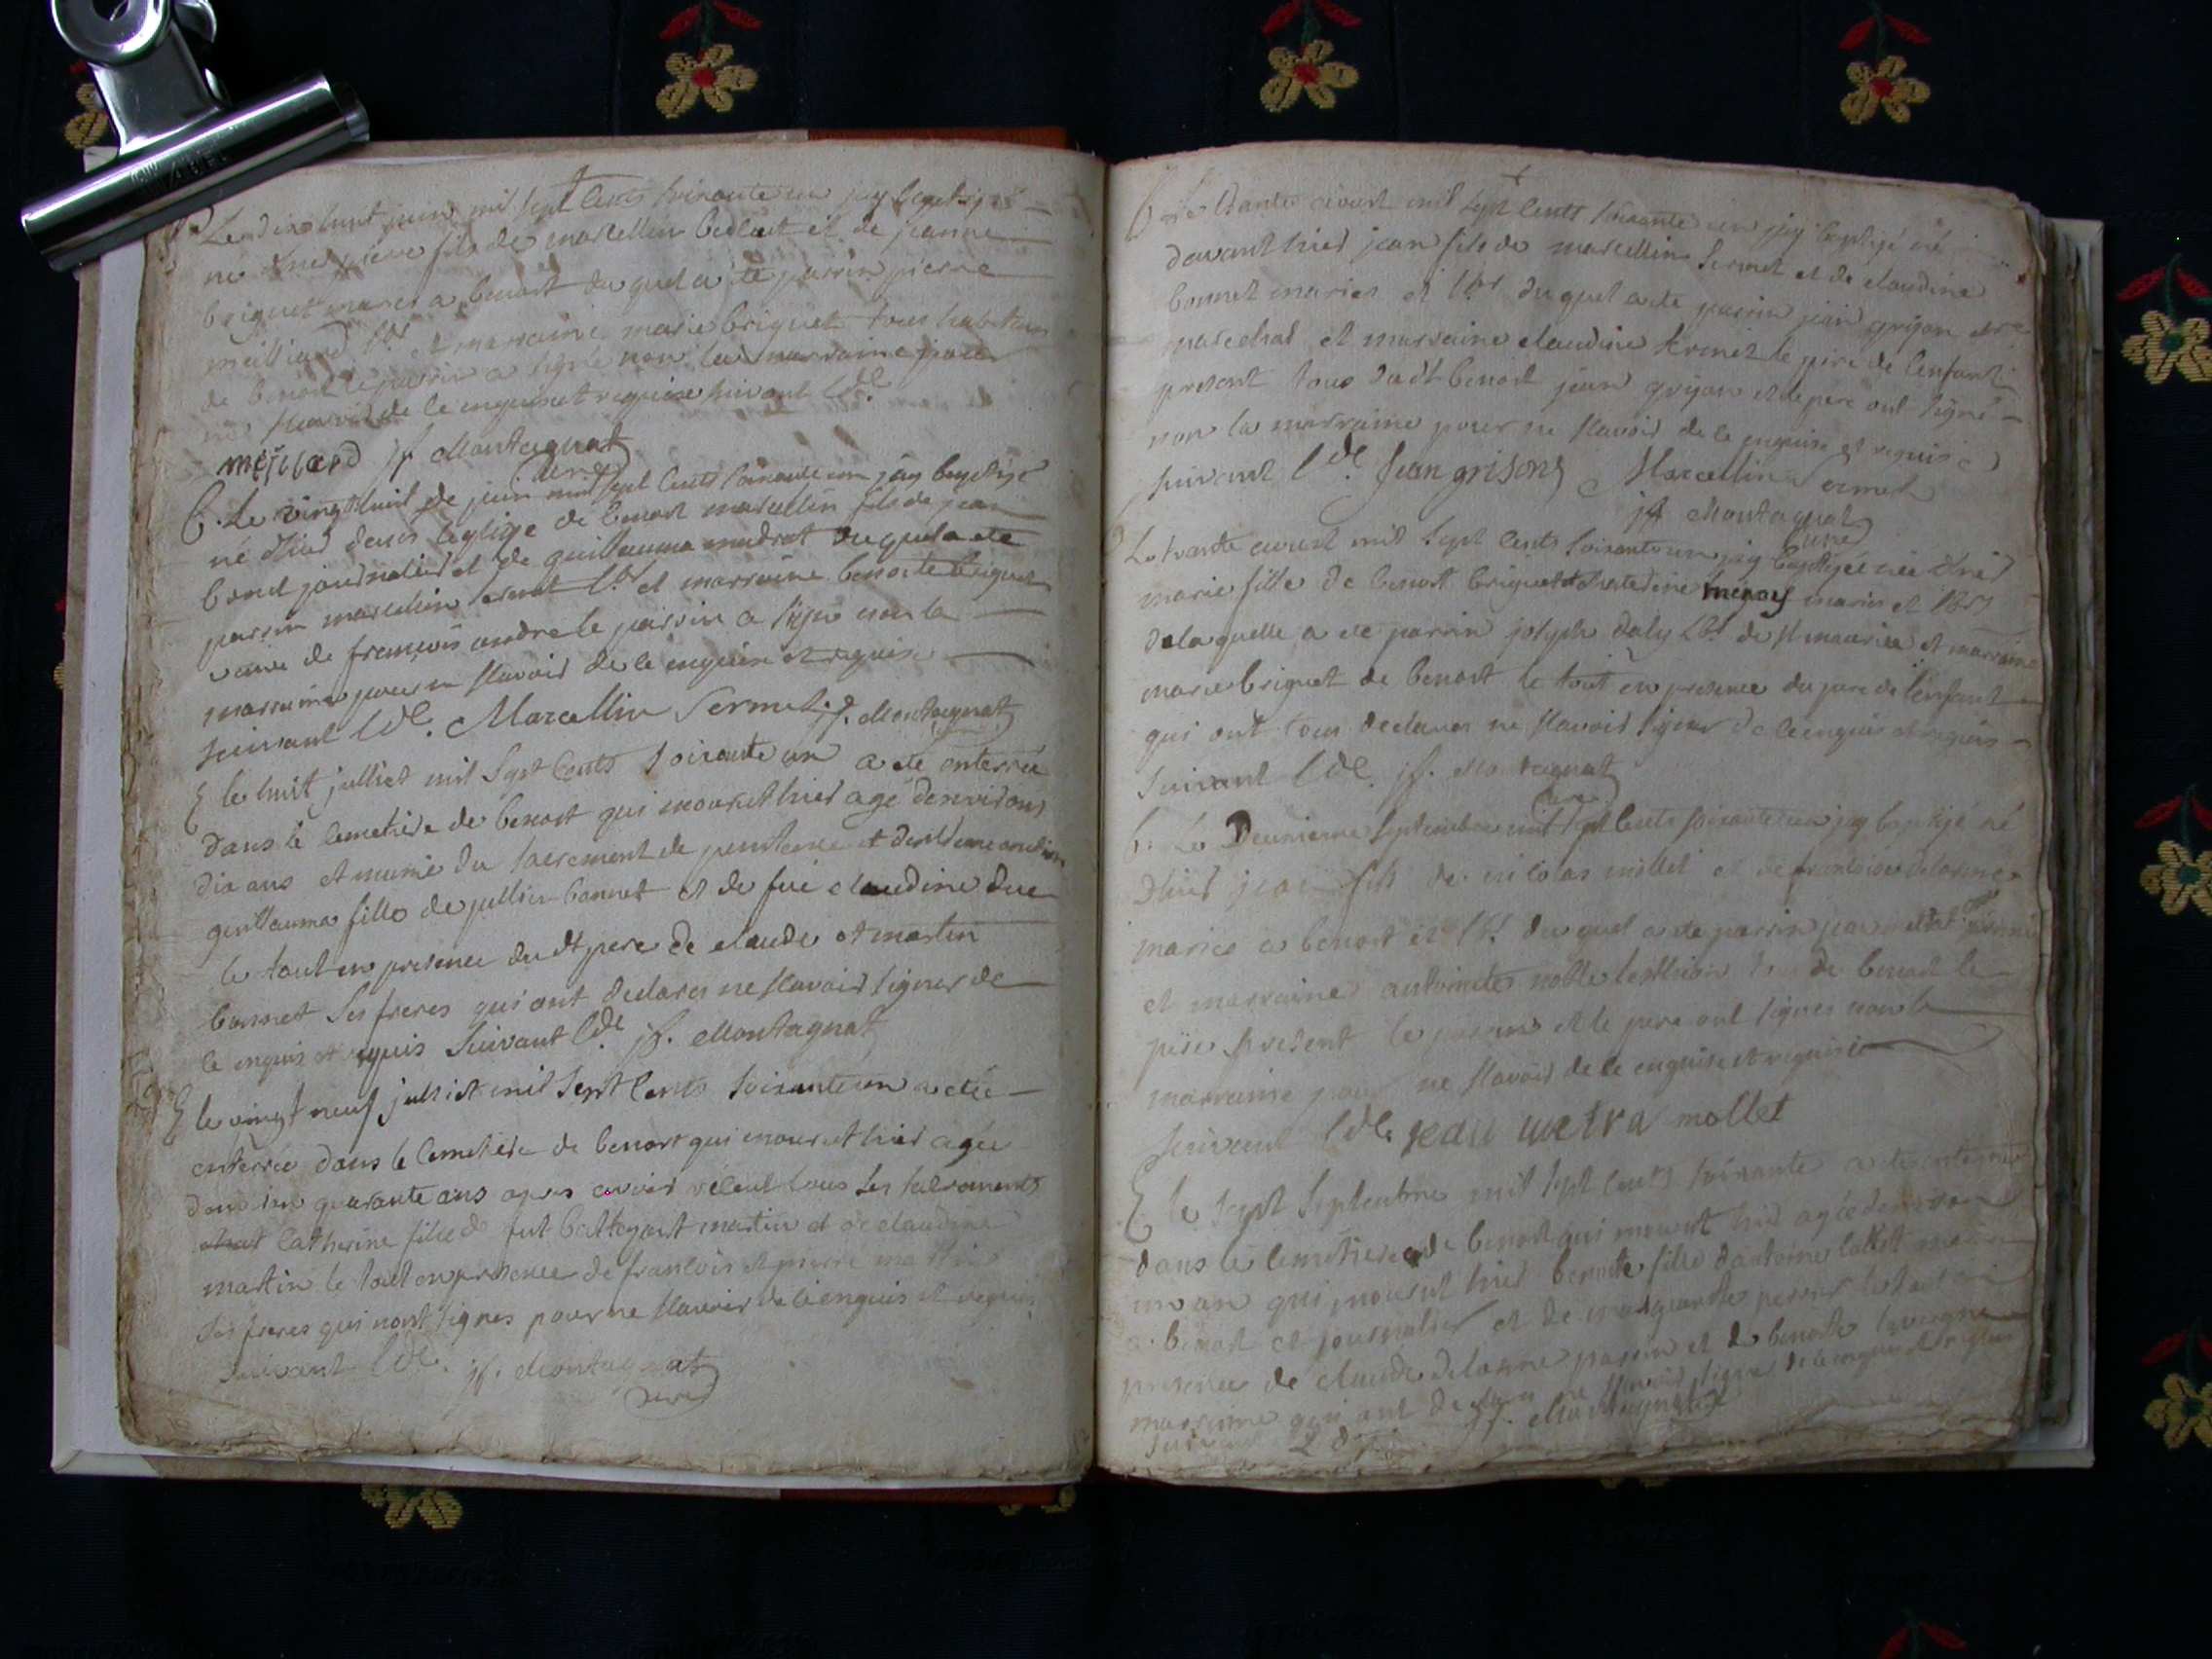 Le dix huit juin mil sept cents soixante un jay baptisé
né hier pierre fils de marcellin et de jeanne
briquet mariés a benost du quel a été parrin pierre
meilliard lbr et marraine marie briquet tous habitans
de benost le parrin a signé non la marraine pour
ne scavoir de ce enquise et requise suivant lde
meillard jf Montagnat
curé
B. Le vingt huit de juin mil sept cents soixante un jay baptisé
né d'hier dans leglise de benost marcellin fils de jean
bonet journalier et de guillauma mudrat duquel a été
parrin marcellin sermet lbr et marraine benoite briquet
veuve de francois andre le parrin a signé non la
marraine pour ne scavoir de ce enquise et requise
suivant lde. Marcellin Sermet jf. Montagnat
E le huit julliet mil sept cents soixante un a été enterrée
dans le cemetiere de benost qui mourut hier agé denvirons
dix ans et munie du sacrement de penitence et dextreme onction
guillauma fille de jullien bonnet et de fue claudine duc
le tout en presence du dt pere de claude et martin
bonnet ses freres qui ont declarés ne scavoir signer de
ce enquis et requis suivant lde jf. Montagnat
E le vingt neuf julliet mil sept cents soixante un a étée
enterrée dans le cemetiere de benost qui mourut hier agée
denviron quarante ans apres avoir réceut tous ses sacraments
catherine fille de fut martin et de claudine
martin le tout en presence de francois et pierre martin
ses freres qui nont signés pour ne scavoir de ce enquis et requis
suivant lde. jf. Montagnat
curé
B Le trante aoust mil sept cents soixante un jay baptisé né
davant hier jean fils de marcellin sermet et de claudine
bonnet mariés et lbrs duquel a été parrin jean grison
marechal et marraine claudine sermet le pere de lenfant
present tous dudt benost jean grison et le pere ont signé
non la marraine pour ne scavoir de ce enquise et requise
suivant lde. Jean grison Marcellin Sermet
jf Montagnat
curé
Le trante aoust mil sept cents soixante un jay baptisée née d'hier
marie fille de benoit briquet et mariés et lbrs
de laquelle a été parrin joseph daly lbr de st maurice et marraine
marie briquet de benost le tout en presence du pere de lenfant
qui ont tous declarés ne scavoir signer de ce enquis et requis
suivant lde. jf. Montagnat
curé
B. Le Deuxieme septembre mil sept cents soixante un jay baptisé né
d'hier jean fils de nicolas mollet et de francoise delorme
mariés a benost et lbrs du quel a été parrin jean
et marraine antoinette noble tous de benost le
pere present le parrin et le pere ont signés non la
marraine pour ne scavoir de ce enquise et requise
suivant lde jean mollet
E le sept septembre mil sept cents soixante a été enterrée
dans le cemetiere de benost qui mourut hier agée denviron
un an qui mourut hier benoite fille dantoine
a benost et journalier et de marguerite le tout en
presence de claude delorme parrin et de benoite
marraine qui ont declarés ne scavoir signer de ce enquis et requis
suivant lde jf. Montagnat